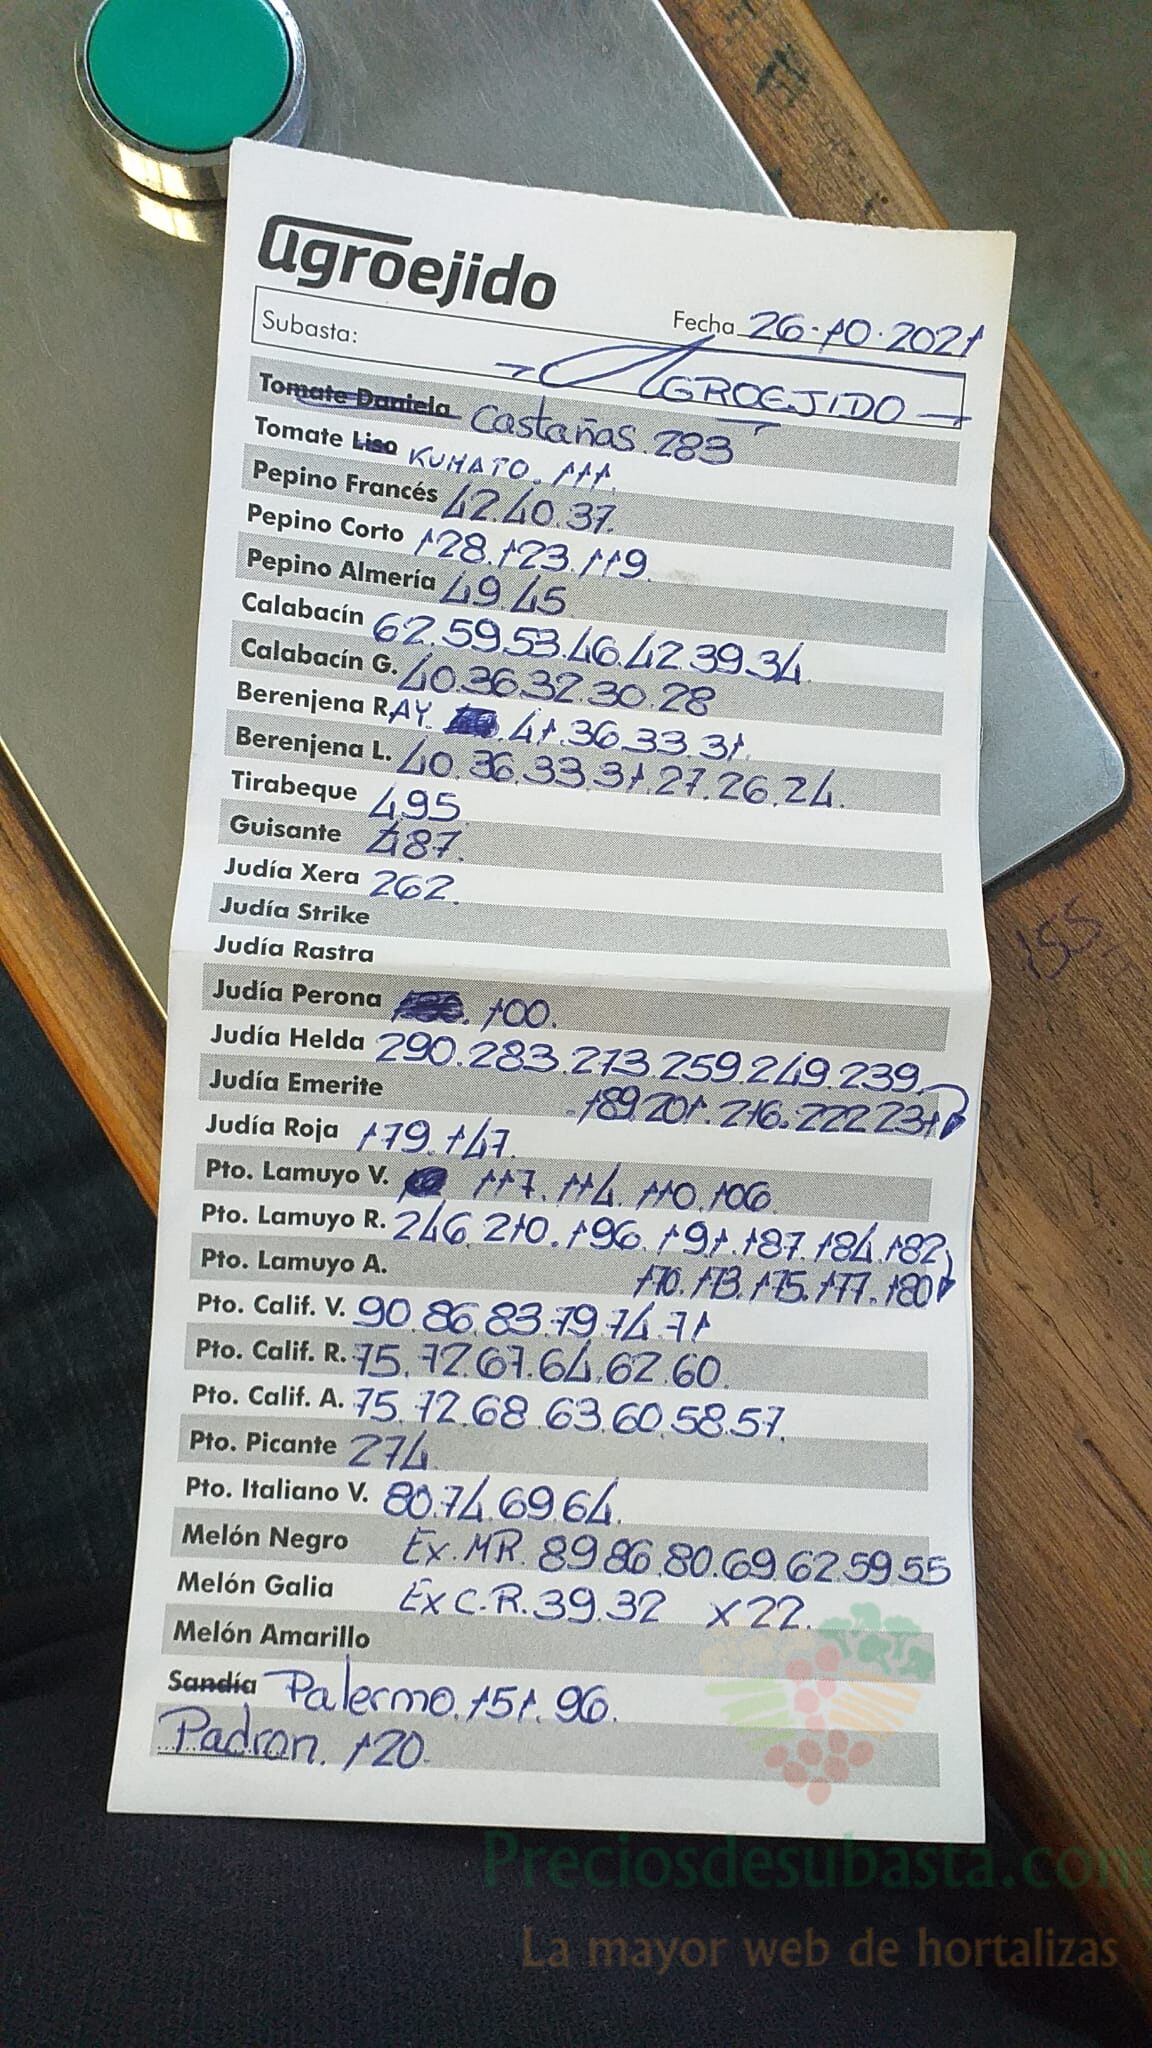 agroejido
Fecha 26-10-2021
Subasta: AGROEJIDO
Tomate Daniela Castañas. 283
Tomate Liso KUMATO. 111.
Pepino Francés 42.40.37.
Pepino Corto 128.123.119.
Pepino Almería 49.45
Calabacín 62.59.53.46.42.39.34.
Calabacín G. 40.36.32.30.28
Berenjena RAY. 41.36.33.31.
Berenjena L. 40.36.33.31.27.26.24.
Tirabeque 495.
Guisante 487.
Judía Xera 262.
Judía Strike
Judía Rastra
Judía Perona 100.
Judía Helda 290.283.273.259.249.239
Judía Emerite 189.201.216.222.231
Judía Roja 179.147.
Pto. Lamuyo V. 117.114.110.106.
Pto. Lamuyo R. 246.210.196.191.187.184.182
Pto. Lamuyo A. 170.173.175.177.180
Pto. Calif. V. 90.86.83.79.74.71
Pto. Calif. R. 75.72.67.64.62.60.
Pto. Calif. A. 75.72.68.63.60.58.57.
Pto. Picante 274.
Pto. Italiano V. 80.74.69.64.
Melón Negro Ex.MR. 89.86.80.69.62.59.55
Melón Galia Ex C.R. 39.32 x22.
Melón Amarillo
Sandía Palermo. 151.96.
Padron. 120.
155
Preciosdesubasta.com
La mayor web de hortalizas